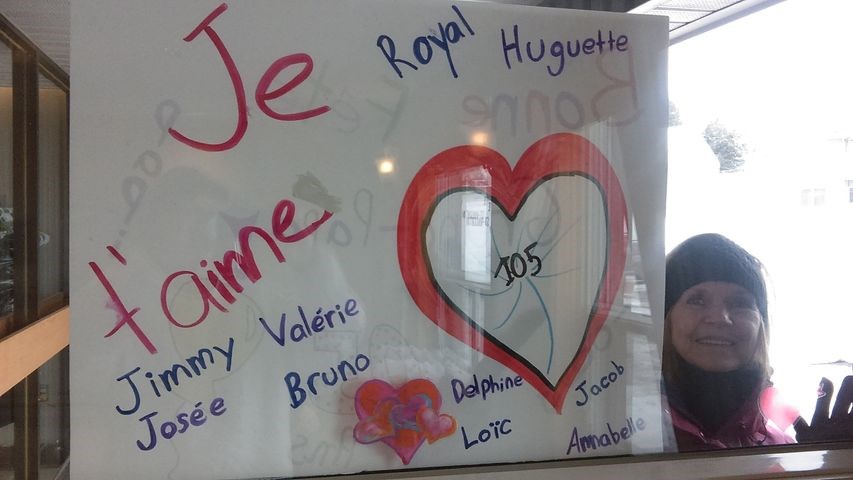 Je
Royal Huguette
t'aime
105
Jimmy Valérie
Josée Bruno
Delphine Jacob
Loïc Annabelle
Bonne